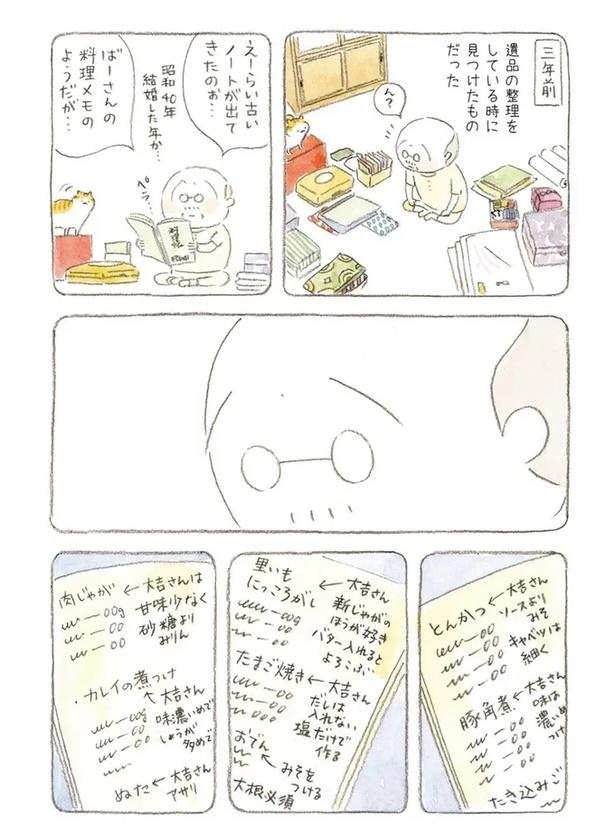 三年前
遺品の整理を
している時に
見つけたもの
だった
ん?
えーらい古い
ノートが出て
きたのぉ…
昭和40年
結婚した年か…
ばーさんの
料理メモの
ようだが…
ペラ…
料理
とんかつ ← 大吉さん
ソースより
みそ
キャベツは
細く
豚角煮 ← 大吉さん
味は
濃いめ
つけ
たき込みご
里いも
にっころがし ← 大吉さん
新じゃがの
ほうが好き
バター入れると
よろこぶ
たまご焼き ← 大吉さん
だしは
入れない
塩だけで
作る
おでん
← みそを
つける
大根必須
肉じゃが ← 大吉さんは
甘味少なく
砂糖より
みりん
・カレイの煮つけ
← 大吉さん
味濃いめで
しょうが
多めご
ぬた ← 大吉さん
アサリ